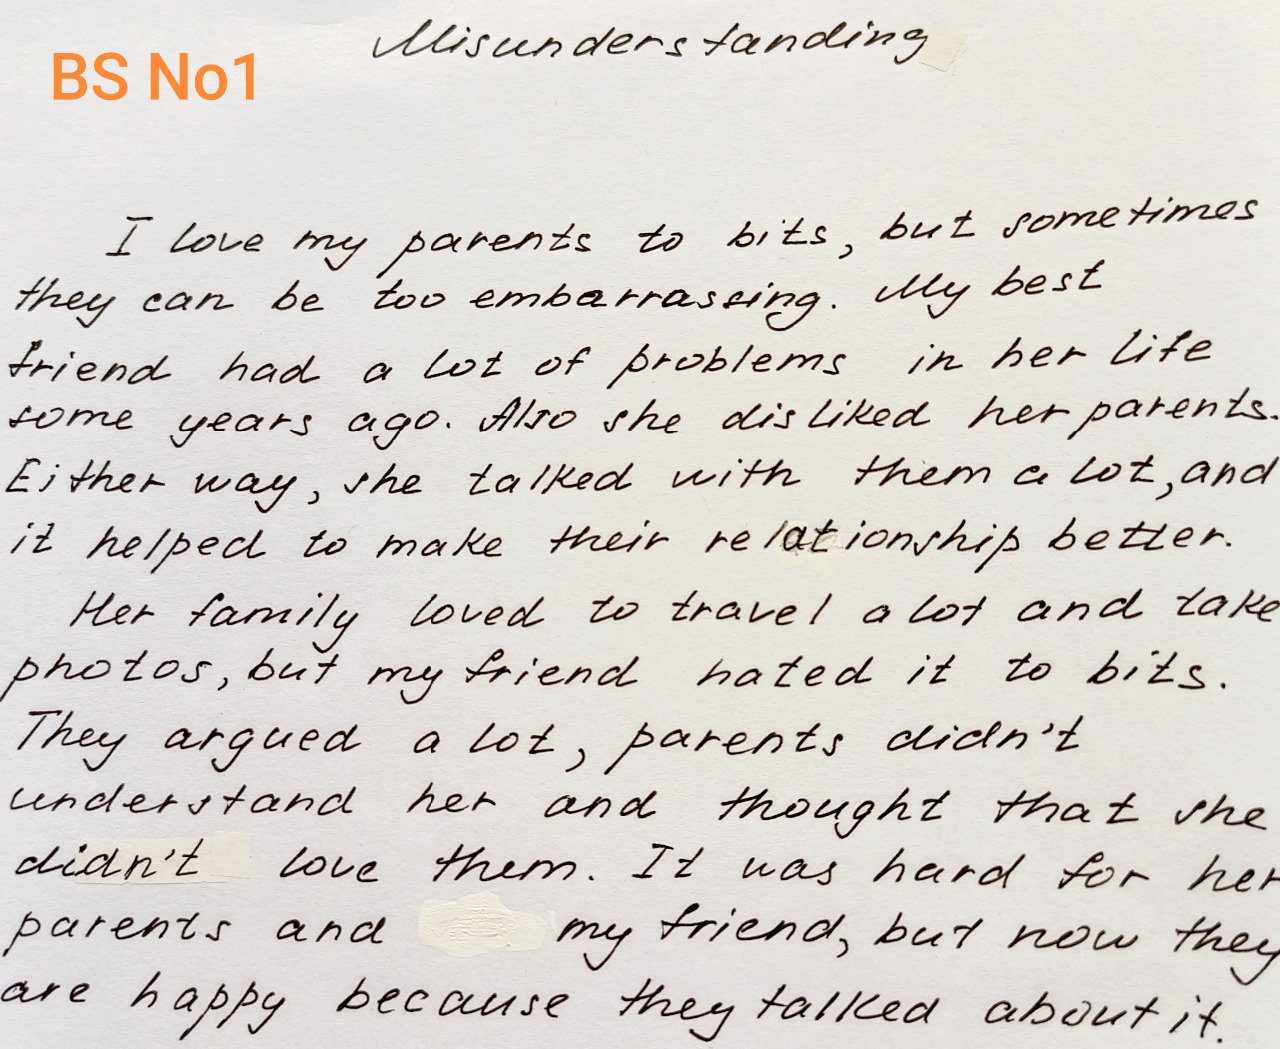 Misunderstanding
BS No1
I love my parents to bits, but sometimes
they can be too embarrassing. My best
friend had a lot of problems in her life
some years ago. Also she disliked her parents.
Either way, she talked with them a lot, and
it helped to make their relationship better.
Her family loved to travel a lot and take
photos, but my friend hated it to bits.
They argued a lot, parents didn't
understand her and thought that she
didn't love them. It was hard for her
parents and my friend, but now they
are happy because they talked about it.